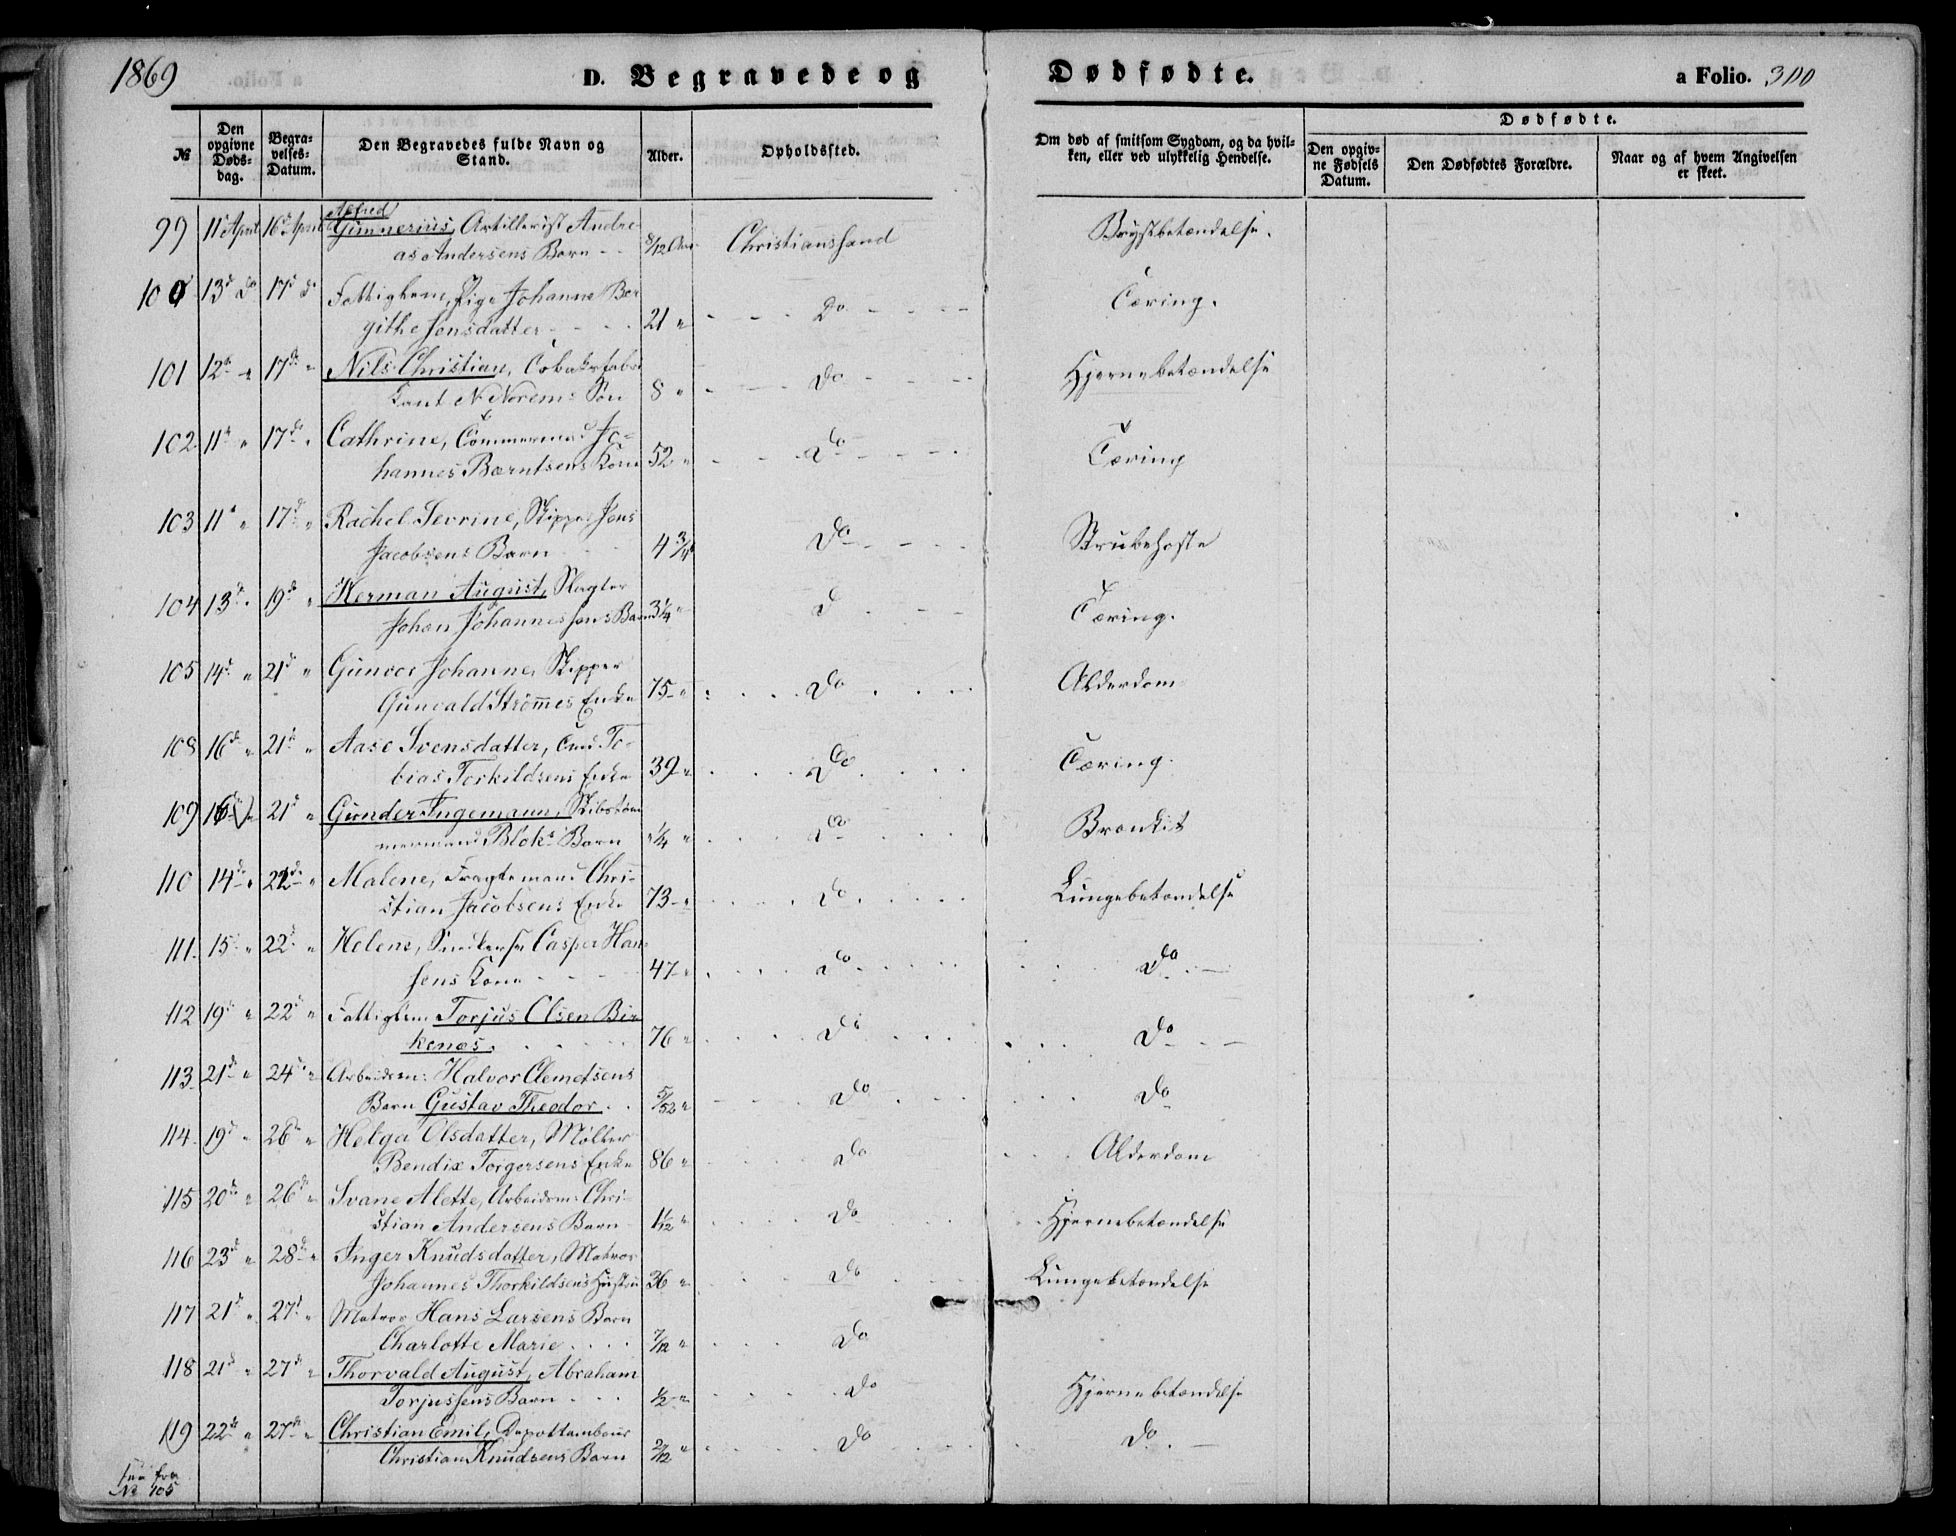 1869
D. Begravede og Dødfødte.
a Folio. 300
№
Den opgivne Døds-dag.
Begra-velses-Datum.
Den Begravedes fulde Navn og Stand.
Alder.
Opholdssted.
Om død af smitsom Sygdom, og da hvil-ken, eller ved ulykkelig Hendelse.
Dødfødte.
Den opgiv-ne Fødsels Datum.
Den Dødfødtes Forældre.
Naar og af hvem Angivelsen er skeet.
Alfred
99 11 April 16d April Gunnerius, Artillerist Andre-
as Andersens Barn 8/12 Christianssand Brystbetændelse.
100 13d do 17d do Fattiglem, Pige Johanne Ber-
githe Jensdatter 21 " Do Tæring.
101 12te " 17de " Nils Christian, Tobaksfabri
kant N Norems Søn 8 " Do Hjernebetændelse
102 11te " 17de " Cathrine, Tømmermd Jo-
hannes Berntsens Kone 52 " Do Tæring
103 11te " 17d " Rachel Sevrine, Skipper Jens
Jacobsens Barn 4 3/4 Do Strubehoste
104 13de " 19de " Herman August, Slagter
Johan Johannessens Barn 3 1/4 " D Tæring.
105 14d " 21d " Gunvor Johanne, Skipper
Gunvald Strømmes Enke 75 " Do Alderdom
108 16d " 21d " Aase Svensdatter, To-
bias Torkildsens Enke 39 " Do Tæring.
109 16 " 21d " Gunder Ingemann, Skibstøm
mermand Bloks Barn 1/4 " Do Bronkit
110 14de " 22de " Malene, Fragtemand Chri-
stian Jacobsens Enke 73 " Do Lungebetændelse
111. 15 " 22d " Helene, Snedkersv Casper Han-
sens Kone 47 " Do Do
112 19d " 22d " Fattiglem Torjus Olsen Bir-
kenæs. 76 " Do Do
113. 21de " 24d " Arbeidsm: Halvor Clemetsens
Barn Gustav Theodor 5/52 " Do Do
114. 19d " 26de " Helga Olsdatter, Møller
Bendix Torgersens Enke 86 " Do Alderdom
115 20de " 26de " Svane Alette, Arbeidsm: Chri-
stian Andersens Barn 1 1/12 " Do Hjernebetændelse
116 23d " 28de " Inger Knudsdatter, Matros
Johannes Thorkildsens Hustru 36 " Do Lungebetændelse
117 21d " 27d " Matros Hans Larsens Barn
Charlotte Marie 7/12 " Do
118 21d " 27de " Thorvald August, Abraham
Torjussens Barn 1/2 " Do Hjernebetændelse
119 22de " 27de " Christian Emil, Depottambour
Christian Knudsens Barn 2/12 " Do Do
see fra
№ 105